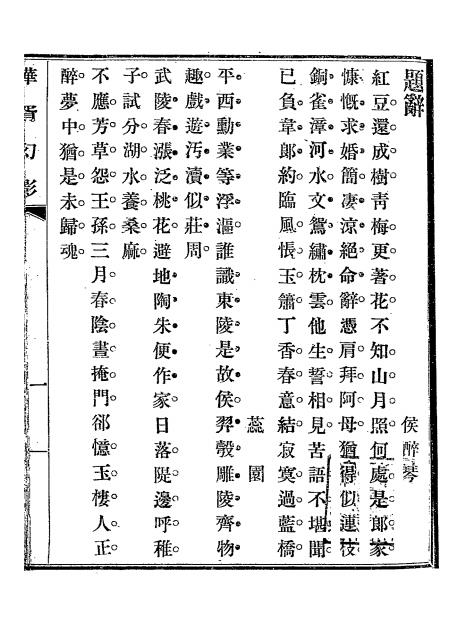 題辭
侯醉琴
紅豆還成樹。青梅更著花。不知山月照。何處是郎家。
慷慨求婚簡。凄涼絕命辭。憑肩拜阿母。猶得似連枝。
銅雀漳河水。文鴛繡枕雲。他生誓相見。苦語不堪聞。
已負韋郎約。臨風悵玉簫。丁香春意結。寂寞過藍橋。
蕊園
平西勳業等浮漚。誰識東陵是故侯。羿彀雕陵齊物
趣。戲遊汚瀆似莊周。
武陵春漲泛桃花。避地陶朱便作家。日落隄邊呼稚
子。試分湖水養桑麻。
不應芳草怨王孫。三月春陰晝掩門。郤憶玉樓人正
醉。夢中猶是未歸魂。
胥幻影
一